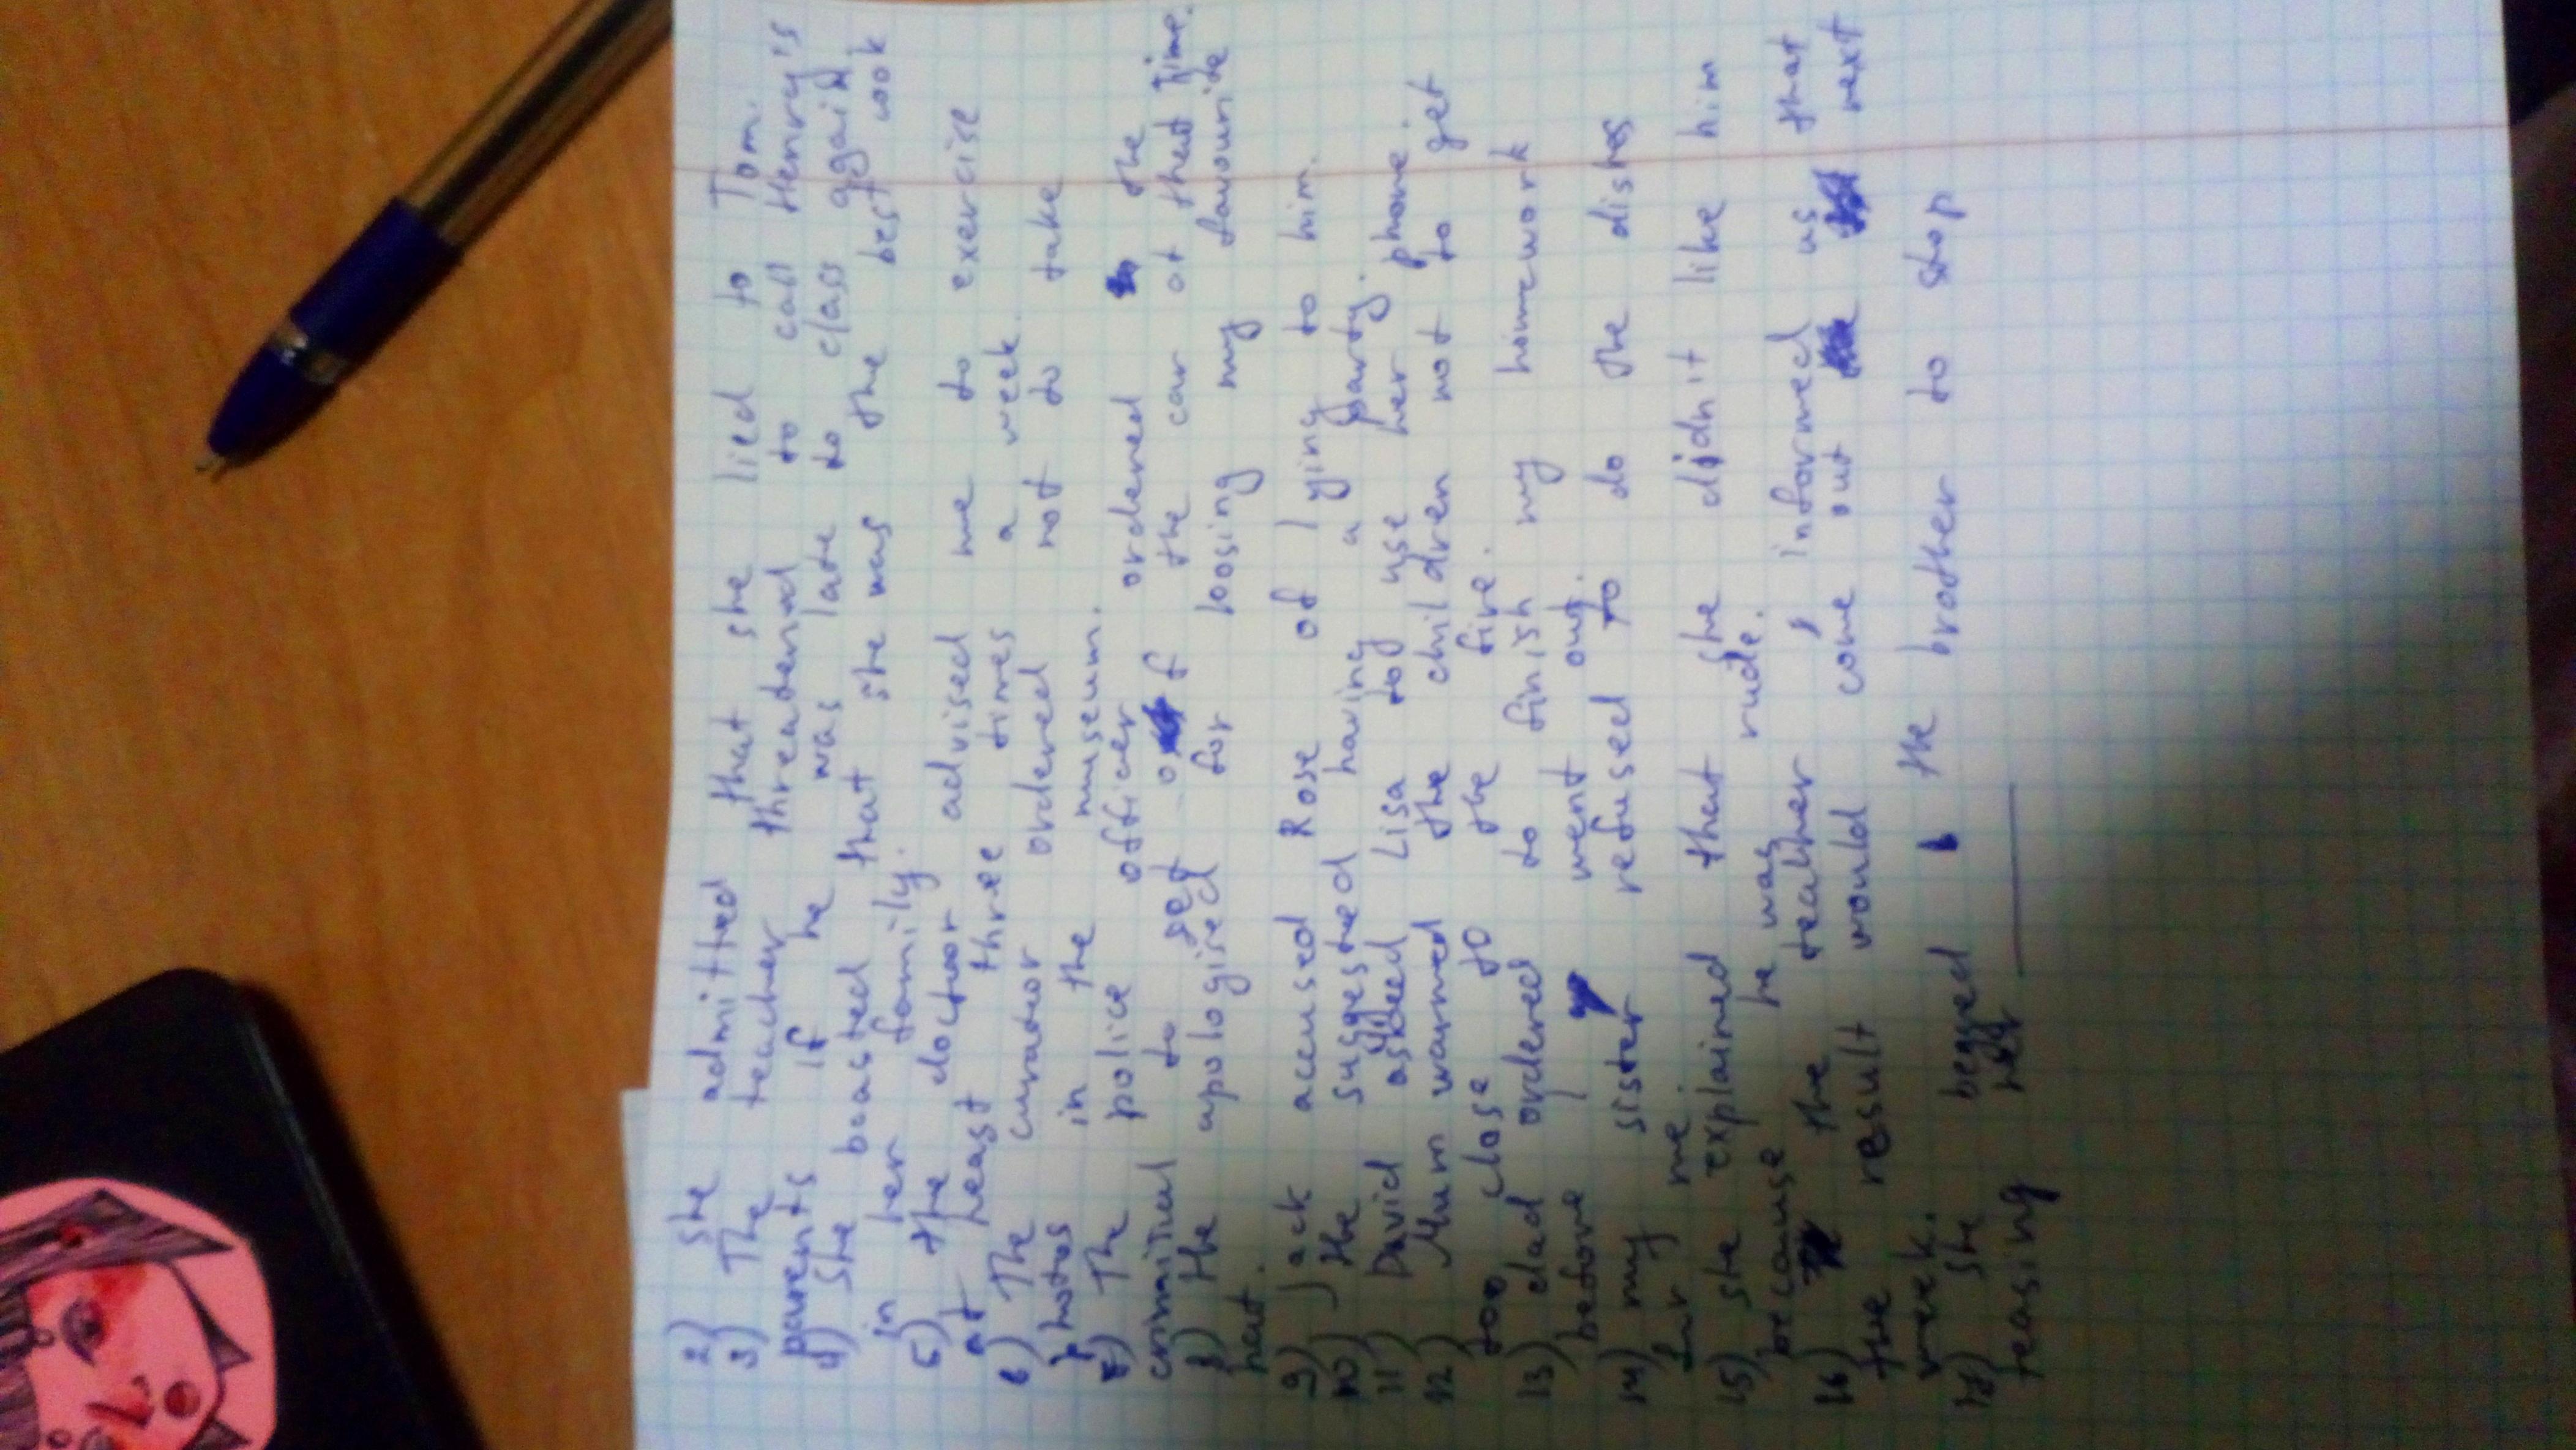 2) she admitted that she lied to Tom.
3) The teacher threatened to call Henry's
parents if he was late to class again.
4) She boasted that she was the best cook
in her family.
5) the doctor advised me to exercise
at least three times a week.
6) The curator ordered not to take
photos in the museum.
7) The police officer ordened the
criminal to get off the car at that time.
8) He apologised for loosing my favourite
hat.
9) Jack accused Rose of lying to him.
10) He suggested having a party.
11) David asked Lisa to use her phone.
12) Mum warned the children not to get
too close to the fire.
13) dad ordered to finish my homework
before I went out.
14) my sister refused to do the dishes
for me.
15) she explained that she didnit like him
because he was rude.
16) the teacher informed us that
the result would come out next
week.
she begged the brother to stop
teasing her